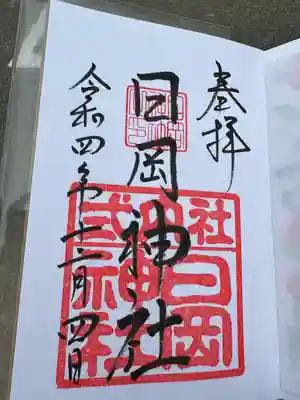 奉拝
日岡神社
令和四年十二月四日
式内社
日岡神社